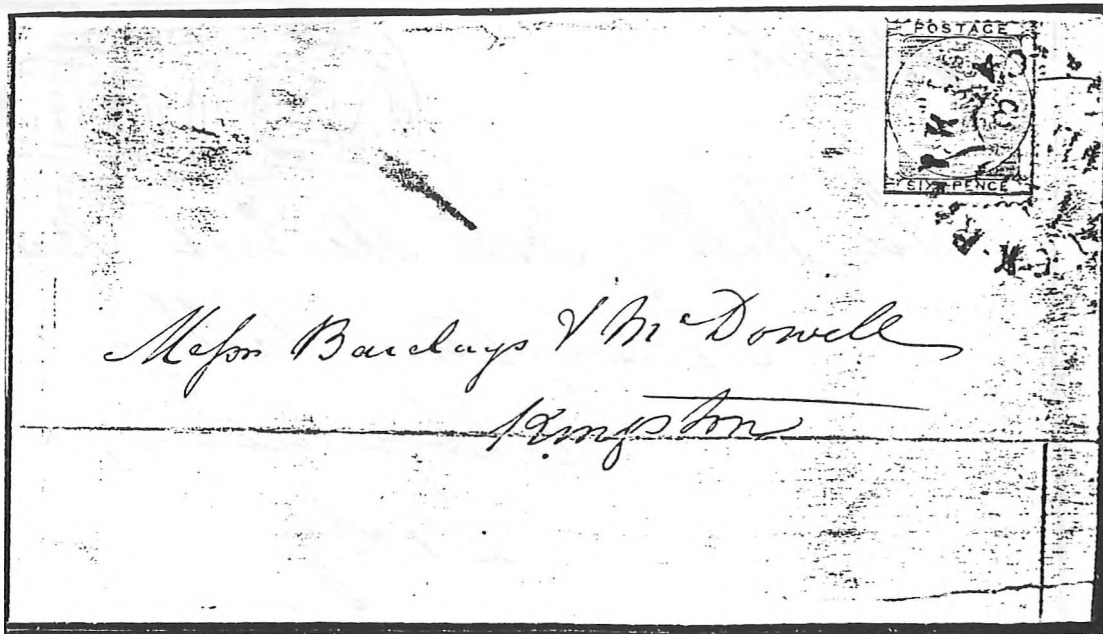 POSTAGE
SIX PENCE
Messrs Barclays & McDowell
Kingston